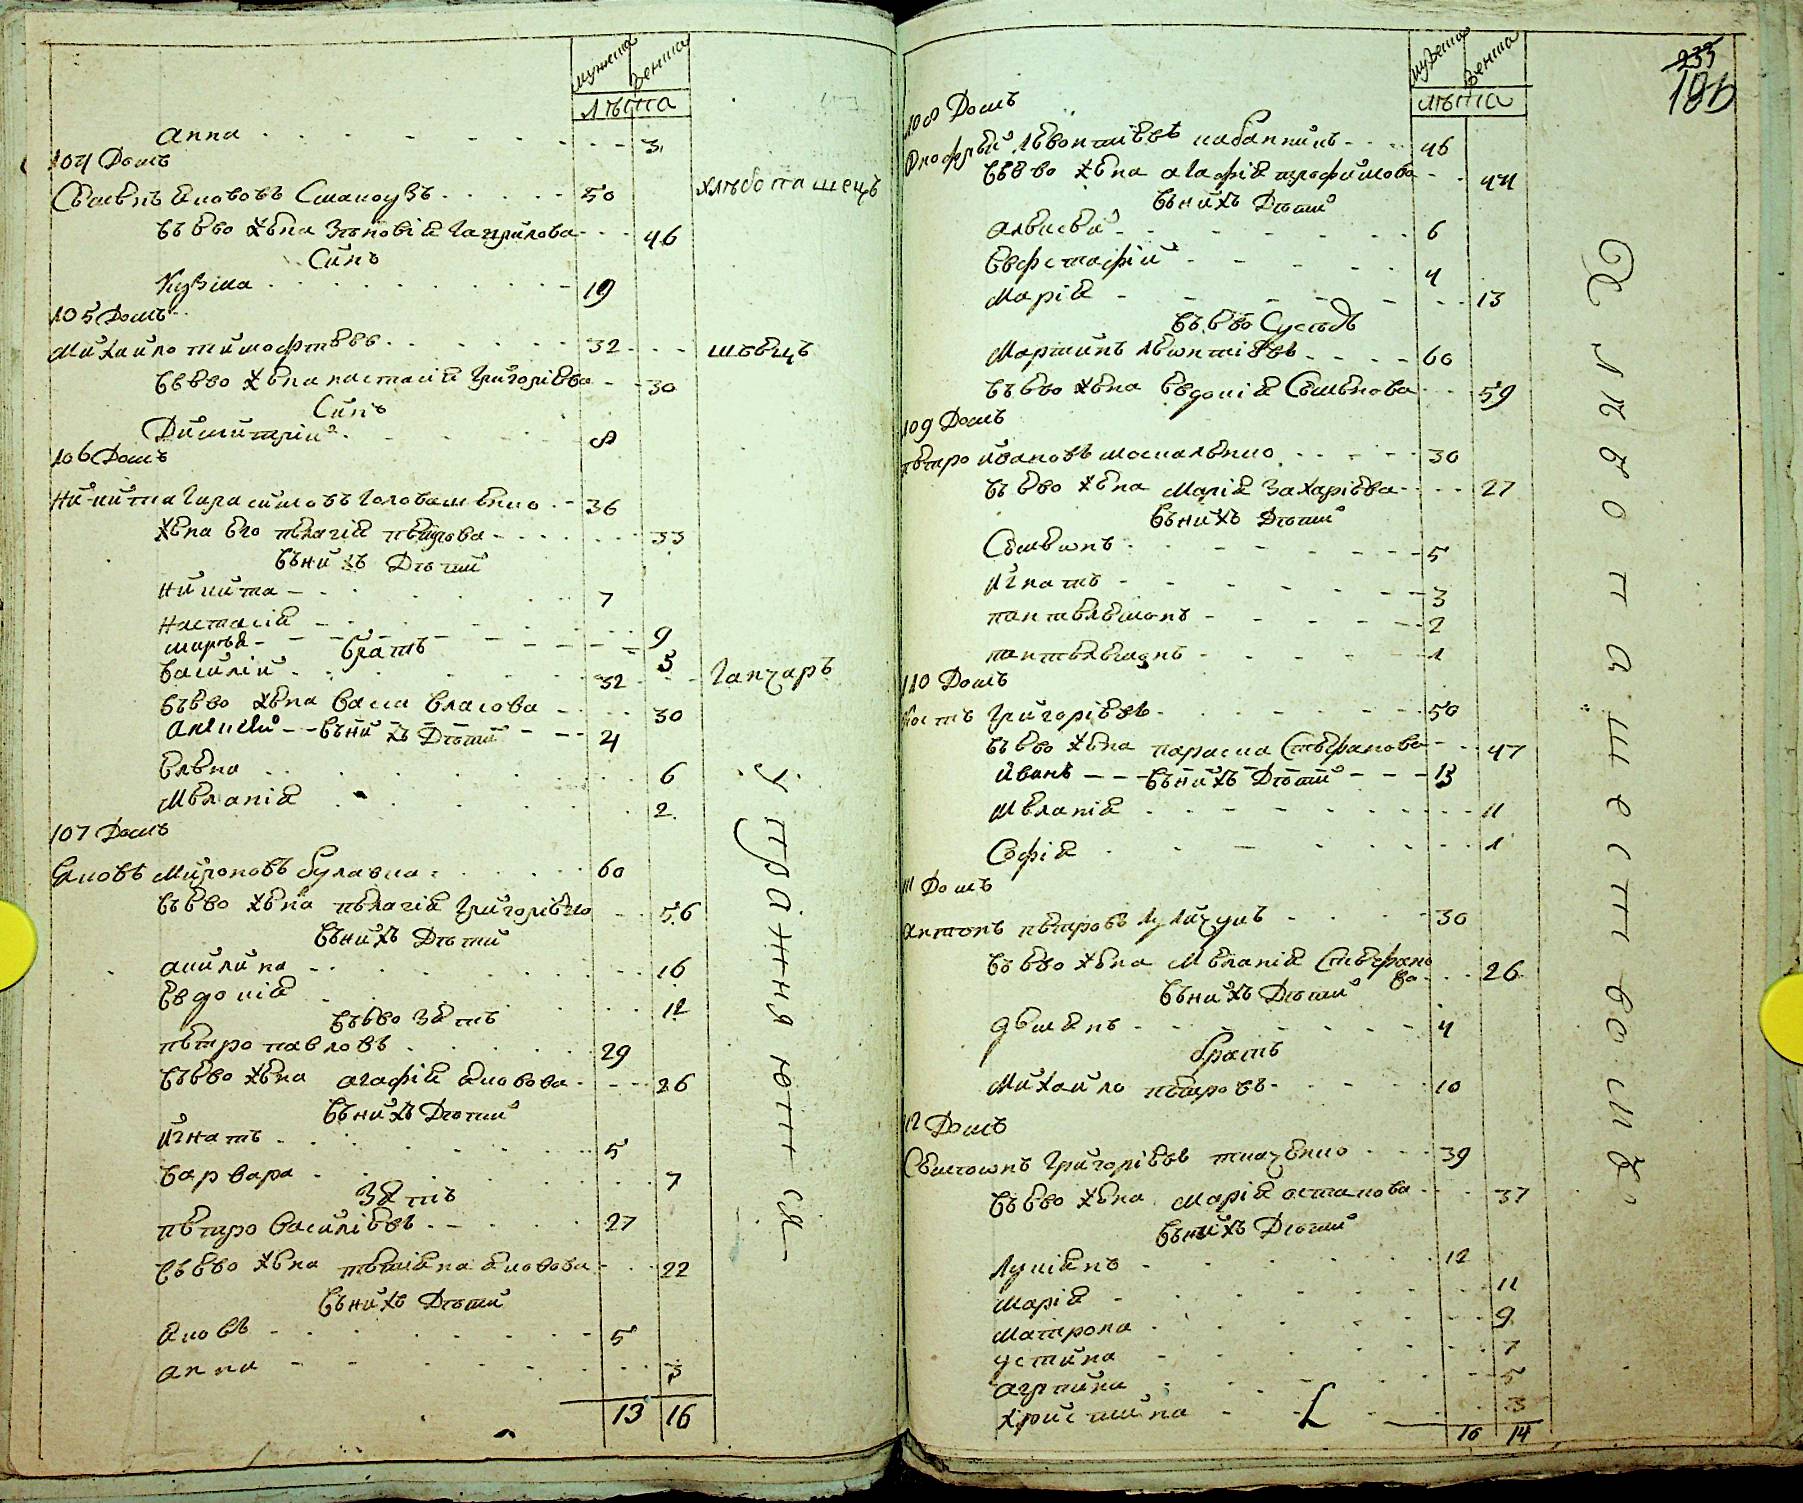 мужеска женска
лѣта
Анна 3
104 Домъ
Семенъ Якововъ 50 хлѣбопашецъ
въ его жена Зѣновія Гаврилова 46
Синъ
Кузма 19
105 Домъ
Михаило Тимофѣевъ 32 швецъ
въ его жена Настасія Григоріева 30
Синъ
Димитрій 8
106 Домъ
Никита Гарасимовъ Головашенко 36
жена его Пелагія 33
въ нихъ Дѣти
Никита 7
Настасія 9
Марѳа 5
братъ
Василій 32 Ганчаръ
въ его жена Васса Власова 30
Алексѣй въ нихъ Дѣти 4
Елена 6
Меланія 2
107 Домъ
Яковъ Мироновъ Булавка 60
въ его жена Пелагія Григоріева 56
въ нихъ Дѣти
Акилина 16
Евдокія 12
въ его Зять
Петро Павловъ 29
въ его жена Агафія Яковова 26
въ нихъ Дѣти
Игнатъ 5
Варвара 7
Зять
Петро Василіевъ 27
въ его жена Яковова 22
въ нихъ Дѣти
Яковъ 5
Анна 3
13 16
упражняютися
233
мужеска женска
лѣта
108 Домъ
Онофрѣй Леонтіевъ 46
въ его жена Агафія Трофимова 44
въ нихъ Дѣти
Алексѣй 6
Евфстафій 4
Марія 13
въ его Сусѣдъ
Мартинъ Леонтіевъ 60
въ его жена Евдокія Семенова 59
109 Домъ
Петро Ивановъ Москаленко 30
въ его жена Марія Захаріева 27
въ нихъ Дѣти
Семенъ 5
Игнатъ 3
Пантелемонъ 2
Пантелемонъ 1
110 Домъ
Григоріевъ 50
въ его жена Параска Стефанова 47
Иванъ въ нихъ Дѣти 13
Меланія 11
Софія 1
111 Домъ
Антонъ Петровъ 30
въ его жена Меланія Стефанова 26
въ нихъ Дѣти
Демянъ 4
братъ
Михаило Петровъ 10
112 Домъ
Семіонъ Григоріевъ Ткаченко 39
въ его жена Марія Остапова 37
въ нихъ Дѣти
Лукіянъ 12
Марія 11
Матрона 9
Устина 7
Агрпина 5
Христина 3
16 14
Хлѣбопашествомъ